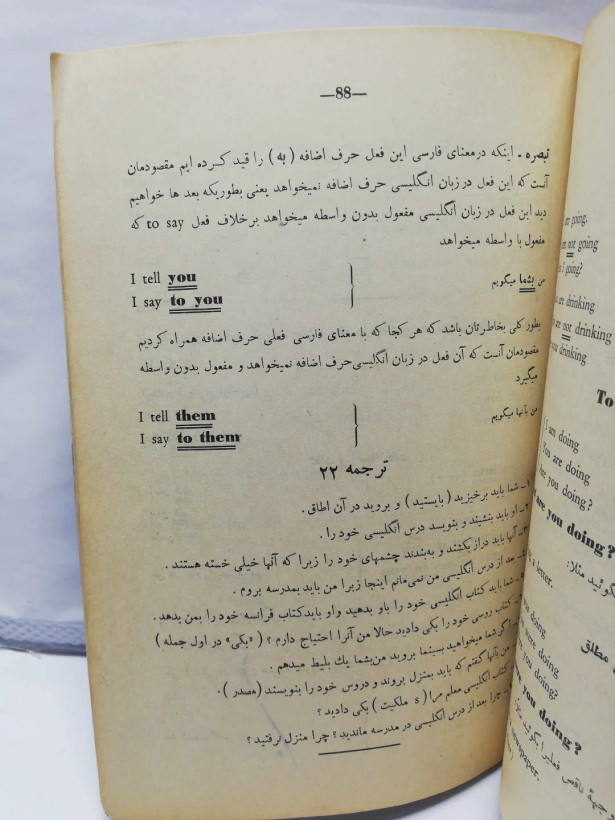 —88—
تبصره ـ اینکه درمعنای فارسی این فعل حرف اضافه ( به ) را قید کرده ایم مقصودمان
آنست که این فعل در زبان انگلیسی حرف اضافه نمیخواهد یعنی بطوریکه بعد ها خواهیم
دید این فعل در زبان انگلیسی مفعول بدون واسطه میخواهد برخلاف فعل to say که
مفعول با واسطه میخواهد
I tell you
من بشما میگویم
I say to you
بطور کلی بخاطرتان باشد که هر کجا که با معنای فارسی فعلی حرف اضافه همراه کردیم
مقصودمان آنست که آن فعل در زبان انگلیسی حرف اضافه نمیخواهد و مفعول بدون واسطه
میگیرد
I tell them
من بآنها میگویم
I say to them
ترجمه ۲۲
۱ـ شما باید برخیزید ( بایستید ) و بروید در آن اطاق .
۲ـ او باید بنشیند و بنویسد درس انگلیسی خود را .
۳ـ آنها باید دراز بکشند و به‌بندند چشمهای خود را زیرا که آنها خیلی خسته هستند .
بعد از درس انگلیسی من نمی‌مانم اینجا زیرا من باید بمدرسه بروم .
شما باید کتاب انگلیسی خود را باو بدهید واو باید کتاب فرانسه خود را بمن بدهد .
کتاب روسی خود را بکی دادید حالا من آنرا احتیاج دارم ؟ ( «بکی» در اول جمله )
اگر شما میخواهید بسینما بروید من بشما یك بلیط میدهم .
من بآنها گفتم که باید بمنزل بروند و دروس خود را بنویسند (مصدر ) .
کتاب انگلیسی معلم مرا ( s ملکیت ) بکی دادید ؟
چرا بعد از درس انگلیسی در مدرسه ماندید ؟ چرا منزل نرفتید ؟
am going.
not going
I going?
are drinking
are not drinking
you drinking
To
I am doing
You are doing
Are you doing?
are you doing?
گوئید مثلا:
a letter.
doing
were doing
you doing?
مطلق
you doing?
newspaper.